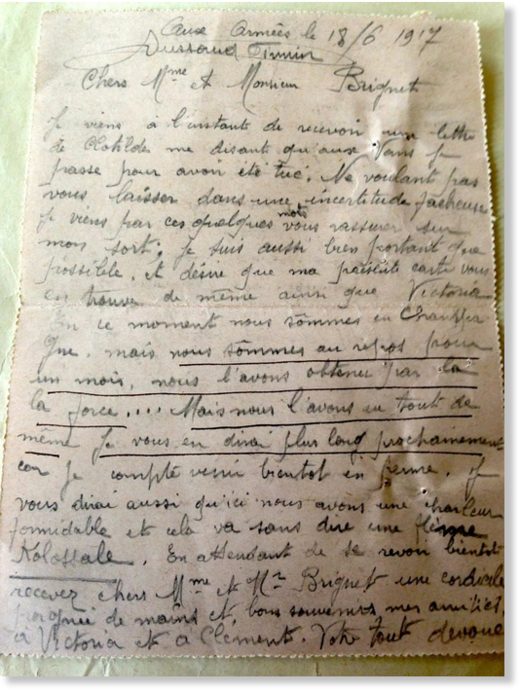 Aux Armées le 18/6 1917
Dussaud Firmin
Chers Mme et Monsieur Brignet
Je viens à l'instant de recevoir une lettre
de Clotilde me disant qu'aux Vans je
passe pour avoir été tué. Ne voulant pas
vous laisser dans une incertitude facheuse
je viens par ces quelques mots vous rassurer sur
mon sort. Je suis aussi bien portant que
possible, et désire que ma présente carte vous
en trouve de même ainsi que Victoria
En ce moment nous sommes en Champa
gne, mais nous sommes au repos pour
un mois, nous l'avons obtenu par la
la force.... Mais nous l'avons eu tout de
même Je vous en dirai plus long prochainement
car je compte venir bientot en perme. Je
vous dirai aussi qu'ici nous avons une chaleur
formidable et cela va sans dire une flemme
Kolossale. En attendant de se revoir bientot
recevez chers Mme et Mr Brignet une cordiale
poignée de mains et, bons souvenirs mes amitiés
à Victoria et à Clément. Votre tout dévoué